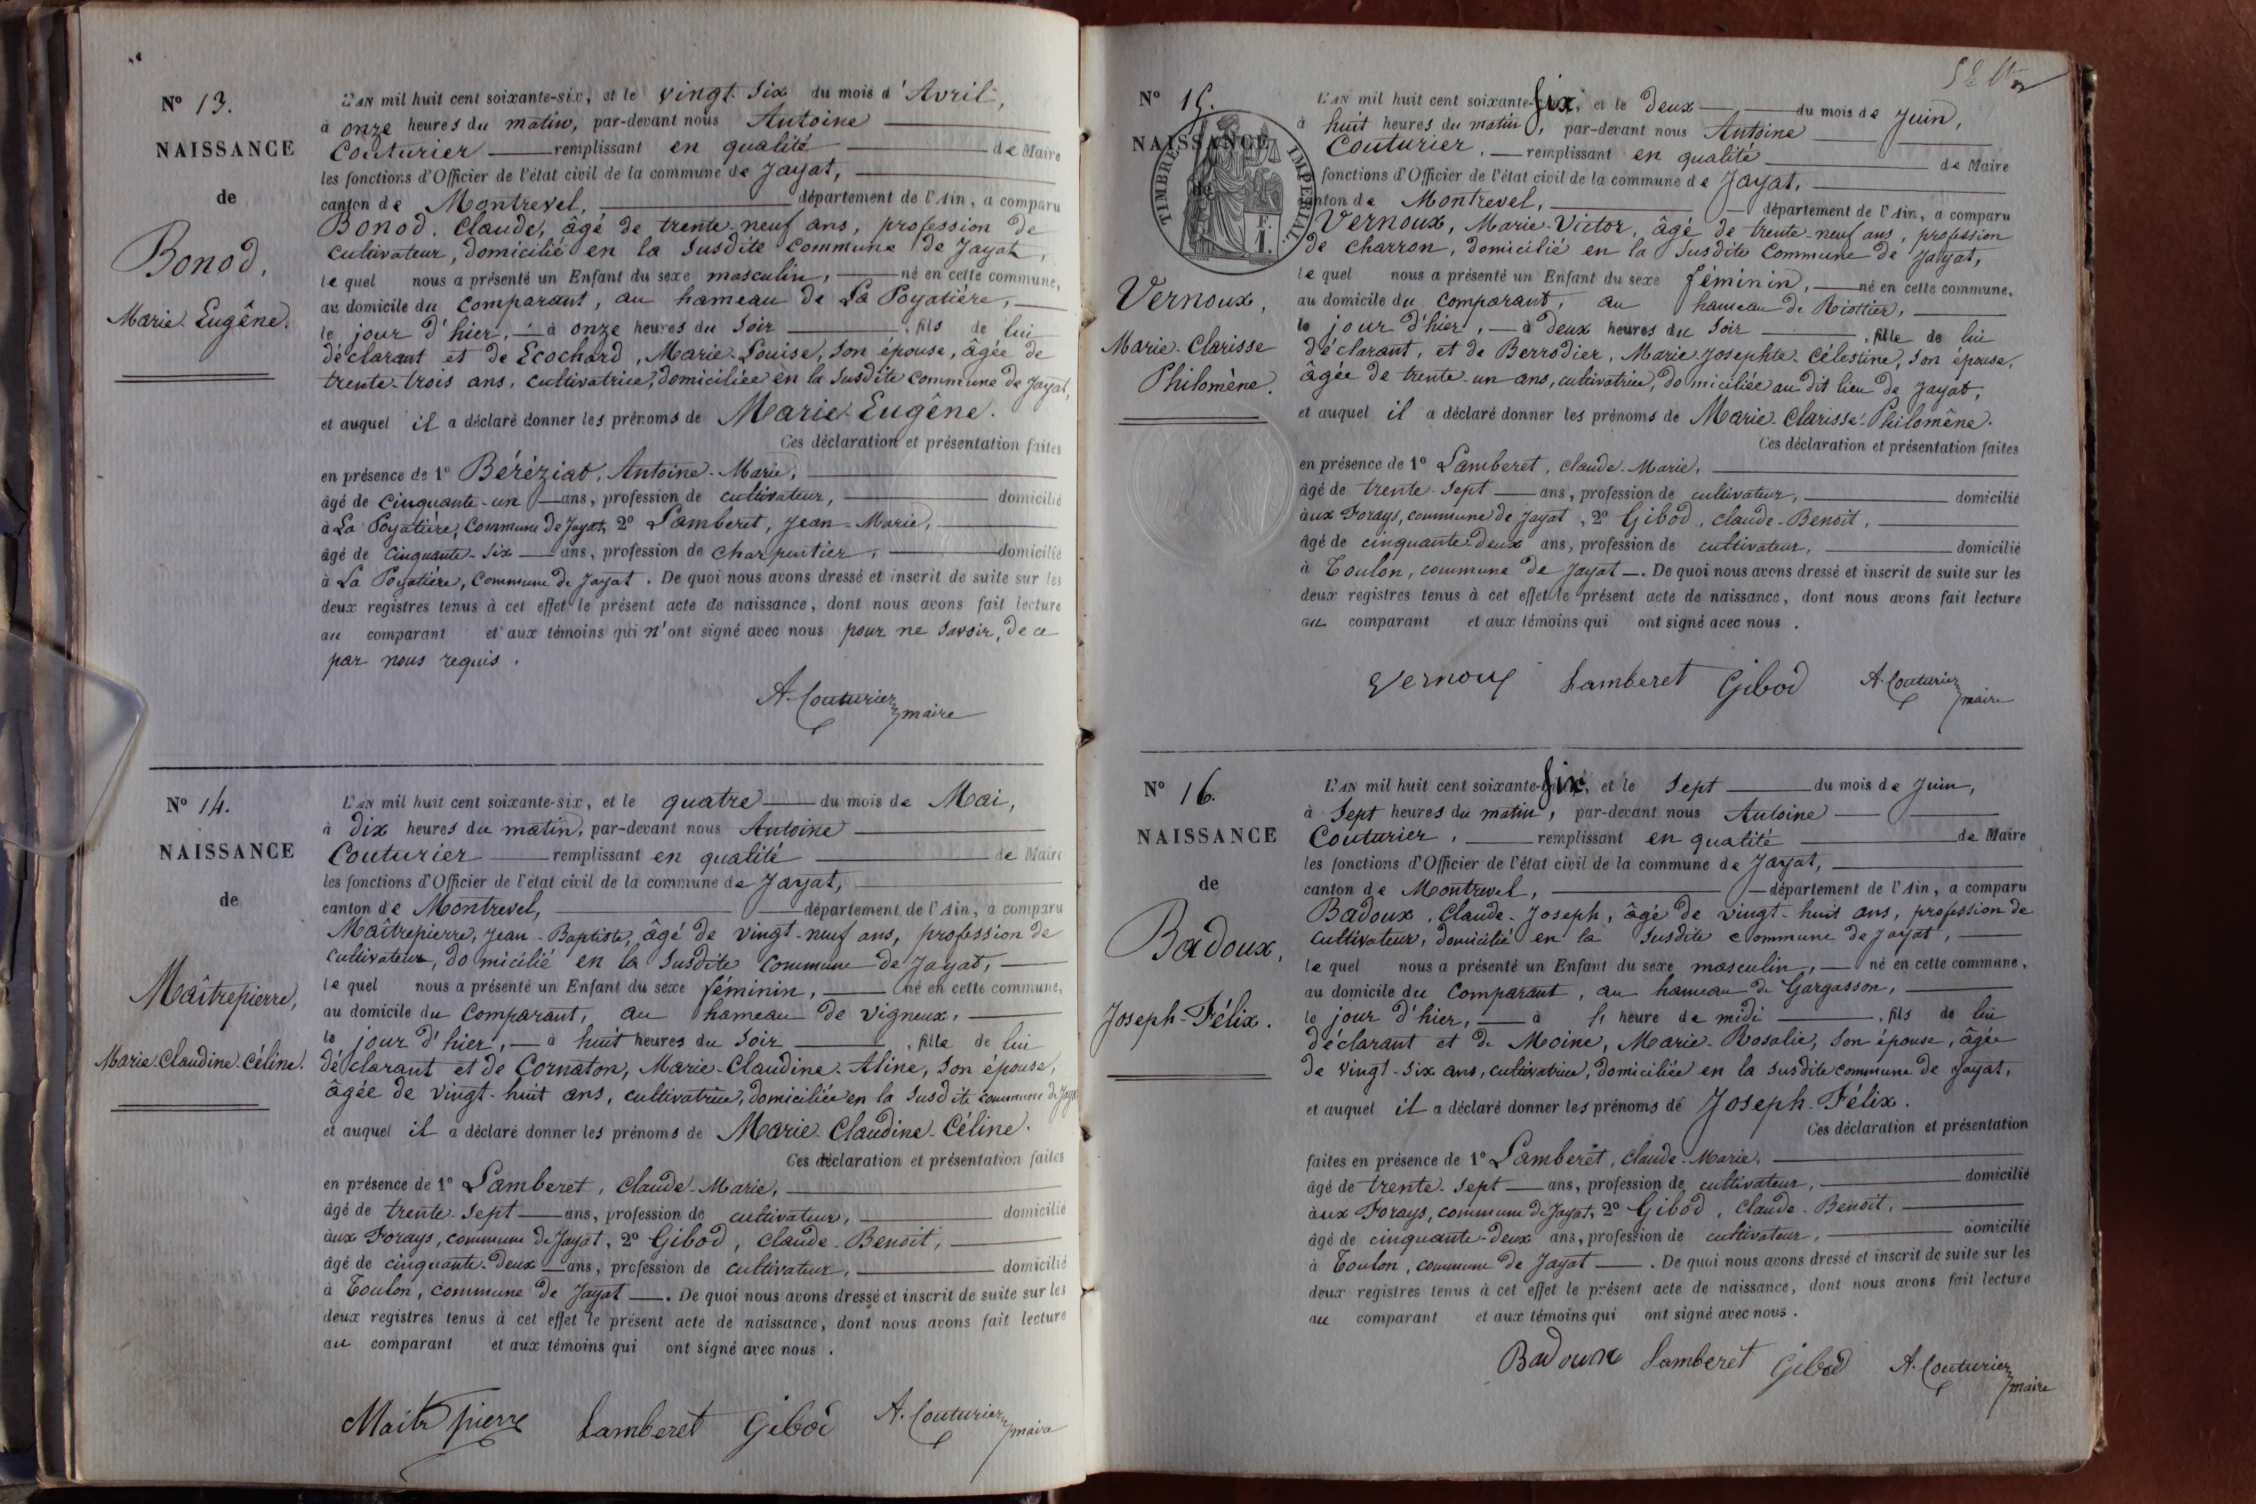 N° 13.
NAISSANCE
de
Bonod,
Marie Eugêne.
L'AN mil huit cent soixante-six, et le vingt-six du mois d'Avril,
à onze heures du matin, par-devant nous Antoine
Couturier remplissant en qualité de Maire
les fonctions d'Officier de l'état civil de la commune de Jayat,
canton de Montrevel, département de l'Ain, a comparu
Bonod, Claude, âgé de trente-neuf ans, profession de
cultivateur, domicilié en la susdite commune de Jayat,
lequel nous a présenté un Enfant du sexe masculin, né en cette commune,
au domicile du comparant, au hameau de La Poyatière,
le jour d'hier, à onze heures du soir, fils de lui
déclarant et de Ecochard, Marie-Louise, son épouse, âgée de
trente-trois ans, cultivatrice, domiciliée en la susdite commune de Jayat,
et auquel il a déclaré donner les prénoms de Marie-Eugêne.
Ces déclaration et présentation faites
en présence de 1° Béréziat, Antoine-Marie,
âgé de cinquante-un ans, profession de cultivateur, domicilié
à La Poyatière, commune de Jayat, 2° Lamberet, Jean-Marie,
âgé de cinquante-six ans, profession de charpentier, domicilié
à La Poyatière, commune de Jayat. De quoi nous avons dressé et inscrit de suite sur les
deux registres tenus à cet effet le présent acte de naissance, dont nous avons fait lecture
au comparant et aux témoins qui n'ont signé avec nous pour ne savoir, de ce
par nous requis.
A. Couturier
maire
N° 14.
NAISSANCE
de
Maîtrepierre,
Marie-Claudine-Céline.
L'AN mil huit cent soixante-six, et le quatre du mois de Mai,
à dix heures du matin, par-devant nous Antoine
Couturier remplissant en qualité de Maire
les fonctions d'Officier de l'état civil de la commune de Jayat,
canton de Montrevel, département de l'Ain, a comparu
Maîtrepierre, Jean-Baptiste, âgé de vingt-neuf ans, profession de
cultivateur, domicilié en la susdite commune de Jayat,
lequel nous a présenté un Enfant du sexe féminin, né en cette commune,
au domicile du comparant, au hameau de Vigneux,
le jour d'hier, à huit heures du soir, fille de lui
déclarant et de Cornaton, Marie-Claudine-Aline, son épouse,
âgée de vingt-huit ans, cultivatrice, domiciliée en la susdite commune de Jayat
et auquel il a déclaré donner les prénoms de Marie-Claudine-Céline.
Ces déclaration et présentation faites
en présence de 1° Lamberet, Claude-Marie,
âgé de trente-sept ans, profession de cultivateur, domicilié
aux Forays, commune de Jayat, 2° Gibod, Claude-Benoit,
âgé de cinquante-deux ans, profession de cultivateur, domicilié
à Toulon, commune de Jayat. De quoi nous avons dressé et inscrit de suite sur les
deux registres tenus à cet effet le présent acte de naissance, dont nous avons fait lecture
au comparant et aux témoins qui ont signé avec nous.
Maitrpierre Lamberet Gibod A. Couturier
maire
N° 15.
NAISSANCE
de
TIMBRE IMPERIAL
F.
1.
Vernoux,
Marie-Clarisse
Philomène.
L'AN mil huit cent soixante-six, et le deux du mois de Juin,
à huit heures du matin, par-devant nous Antoine
Couturier, remplissant en qualité de Maire
fonctions d'Officier de l'état civil de la commune de Jayat,
canton de Montrevel, département de l'Ain, a comparu
Vernoux, Marie-Victor, âgé de trente-neuf ans, profession
de charron, domicilié en la susdite commune de Jayat,
lequel nous a présenté un Enfant du sexe féminin, né en cette commune,
au domicile du comparant, au hameau de Riottier,
le jour d'hier, à deux heures du soir, fille de lui
déclarant, et de Berrodier, Marie-Josephte-Célestine, son épouse,
âgée de trente-un ans, cultivatrice, domiciliée au dit lieu de Jayat,
et auquel il a déclaré donner les prénoms de Marie-Clarisse-Philomêne.
Ces déclaration et présentation faites
en présence de 1° Lamberet, Claude-Marie,
âgé de trente-sept ans, profession de cultivateur, domicilié
aux Forays, commune de Jayat, 2° Gibod, Claude-Benoit,
âgé de cinquante-deux ans, profession de cultivateur, domicilié
à Toulon, commune de Jayat. De quoi nous avons dressé et inscrit de suite sur les
deux registres tenus à cet effet le présent acte de naissance, dont nous avons fait lecture
au comparant et aux témoins qui ont signé avec nous.
Vernoux Lamberet Gibod A. Couturier
maire
N° 16.
NAISSANCE
de
Badoux,
Joseph-Félix.
L'AN mil huit cent soixante-six, et le sept du mois de Juin,
à sept heures du matin, par-devant nous Antoine
Couturier, remplissant en qualité de Maire
les fonctions d'Officier de l'état civil de la commune de Jayat,
canton de Montrevel, département de l'Ain, a comparu
Badoux, Claude-Joseph, âgé de vingt-huit ans, profession de
cultivateur, domicilié en la susdite commune de Jayat,
lequel nous a présenté un Enfant du sexe masculin, né en cette commune,
au domicile du comparant, au hameau de Gargasson,
le jour d'hier, à l' heure de midi, fils de lui
déclarant et de Moine, Marie-Rosalie, son épouse, âgée
de vingt-six ans, cultivatrice, domiciliée en la susdite commune de Jayat,
et auquel il a déclaré donner les prénoms de Joseph-Félix.
Ces déclaration et présentation
faites en présence de 1° Lamberet, Claude-Marie,
âgé de trente-sept ans, profession de cultivateur, domicilié
aux Forays, commune de Jayat, 2° Gibod, Claude-Benoit,
âgé de cinquante-deux ans, profession de cultivateur, domicilié
à Toulon, commune de Jayat. De quoi nous avons dressé et inscrit de suite sur les
deux registres tenus à cet effet le présent acte de naissance, dont nous avons fait lecture
au comparant et aux témoins qui ont signé avec nous.
Badoux Lamberet Gibod A. Couturier
maire